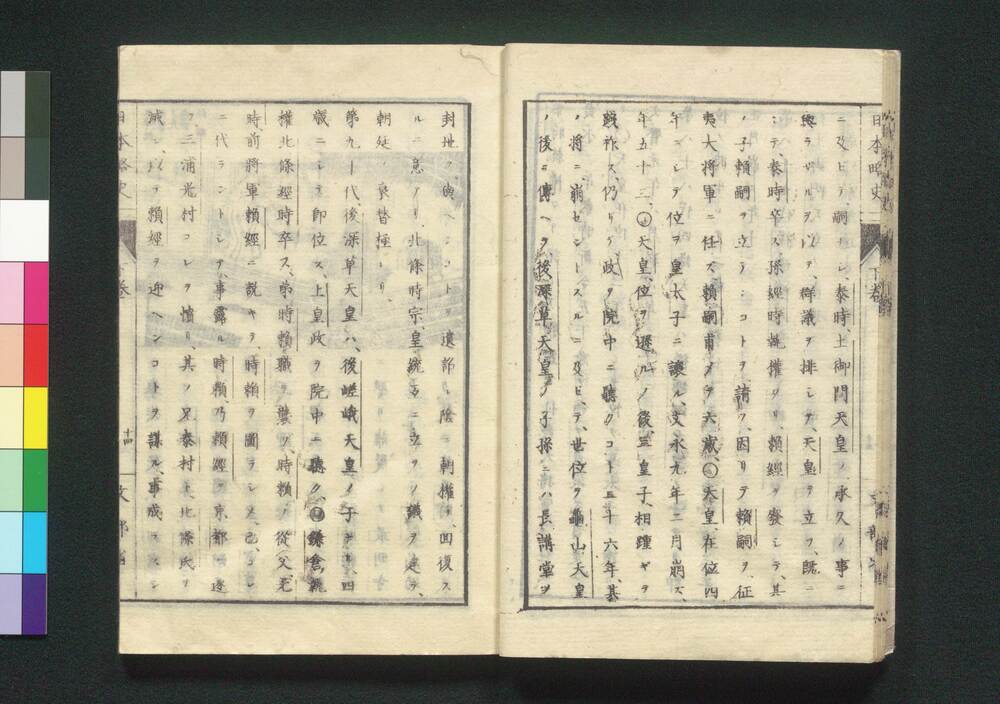 日本略史 下卷
ニ及ビテ、嗣ナシ、泰時、土御門天皇ノ永久ノ事ニ
與ラザルヲ以テ、群議ヲ排シテ、天皇ヲ立ツ、既ニ
シテ、泰時卒ス、孫經時執權タリ、賴經ヲ發シテ、其
ノ子賴嗣ヲ立テンコトヲ請フ、因リテ賴嗣ヲ、征
夷大將軍ニ任ズ、賴嗣甫メテ六歲、天皇、在位四
年ニシテ、位ヲ皇太子ニ讓ル、文永九年二月崩ズ、
年五十三、天皇、位ヲ遜ルノ後、三皇子、相踵ギテ
踐祚ス、仍リテ政ヲ院中ニ聽クコト二十六年、其
ノ將ニ崩ゼントスルニ及ビ、テ、世位ヲ龜山天皇
ノ後ニ傳ヘ、後深草天皇ノ子孫ニハ、長講堂ヲ
封地ヲ、
ルニ意アリ、北條時宗、皇統互ニ立ツノ議ヲ建テ、
朝廷ノ衰替極レリ、
第九十代、後深草天皇ハ、後嵯峨天皇ノ子ナリ、四
歲ニシテ即位ス、上皇政ヲ院中ニ聽ク、鎌倉執
權北條經時卒ス、弟時賴職ヲ襲グ、時賴ノ從父光
時、前將軍賴經ニ說キテ、時賴ヲ圖ラシメ、己、コレ
ニ代ラントシテ、事露ル、時賴、乃賴經ヲ京都ニ逐
フ、三浦光村コレヲ憤リ、其ノ兄泰村ト、北條氏ヲ
滅シ、以テ賴經ヲ迎ヘンコトヲ謀ル、事成ラズシ
日本略史 下卷 十四 文部省